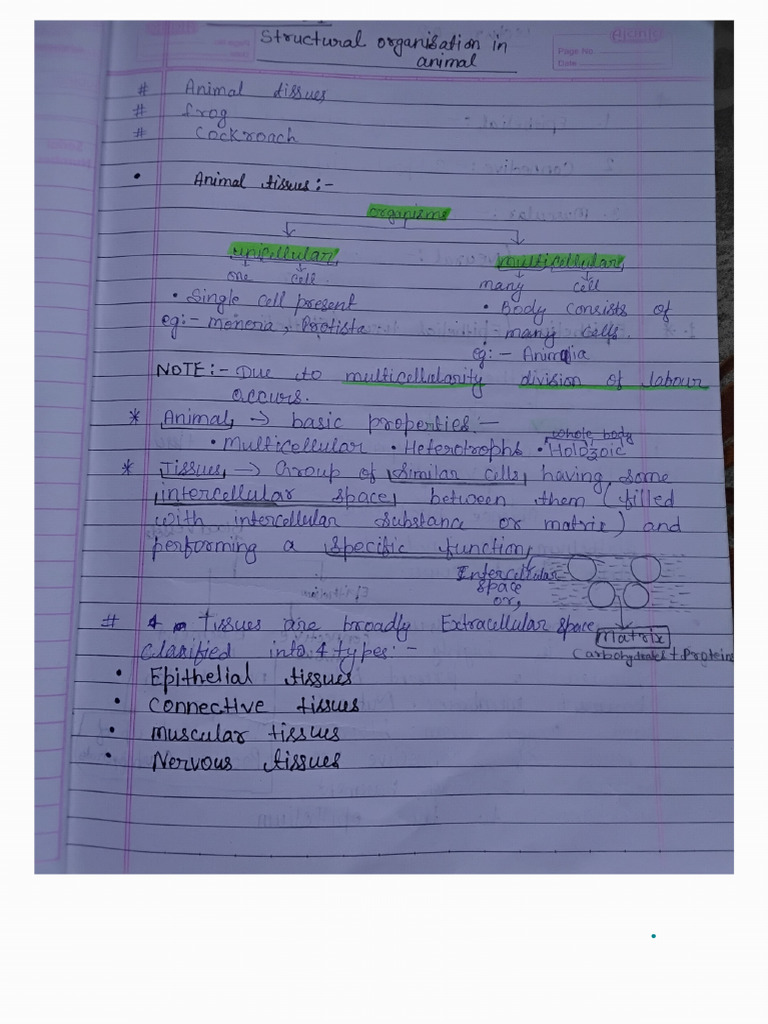 Structural organisation in
animal
Page No
Date
# Animal tissues
# frog
# Cockroach
• Animal tissues:-
organisms
unicellular multicellular
one cell many cell
• Single cell present
eg:- monera, Protista
• Body consists of
many cells.
eg:- Animalia
NOTE:- Due to multicellularity division of labour
occurs.
* Animal → basic properties:-
whole body
• Multicellular • Heterotrophs • Holozoic
* Tissues → Group of similar cells, having some
intercellular space, between them (filled
with intercellular substance or matrix) and
performing a specific function,
Intercellular
space
or,
Extracellular space
Matrix
Carbohydrates + Proteins
# Tissues are broadly
Clasified into 4 types:-
• Epithelial tissues
• Connective tissues
• muscular tissues
• Nervous tissues